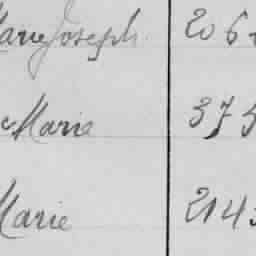 Marie Joseph 206
Marie 375
Marie 2143